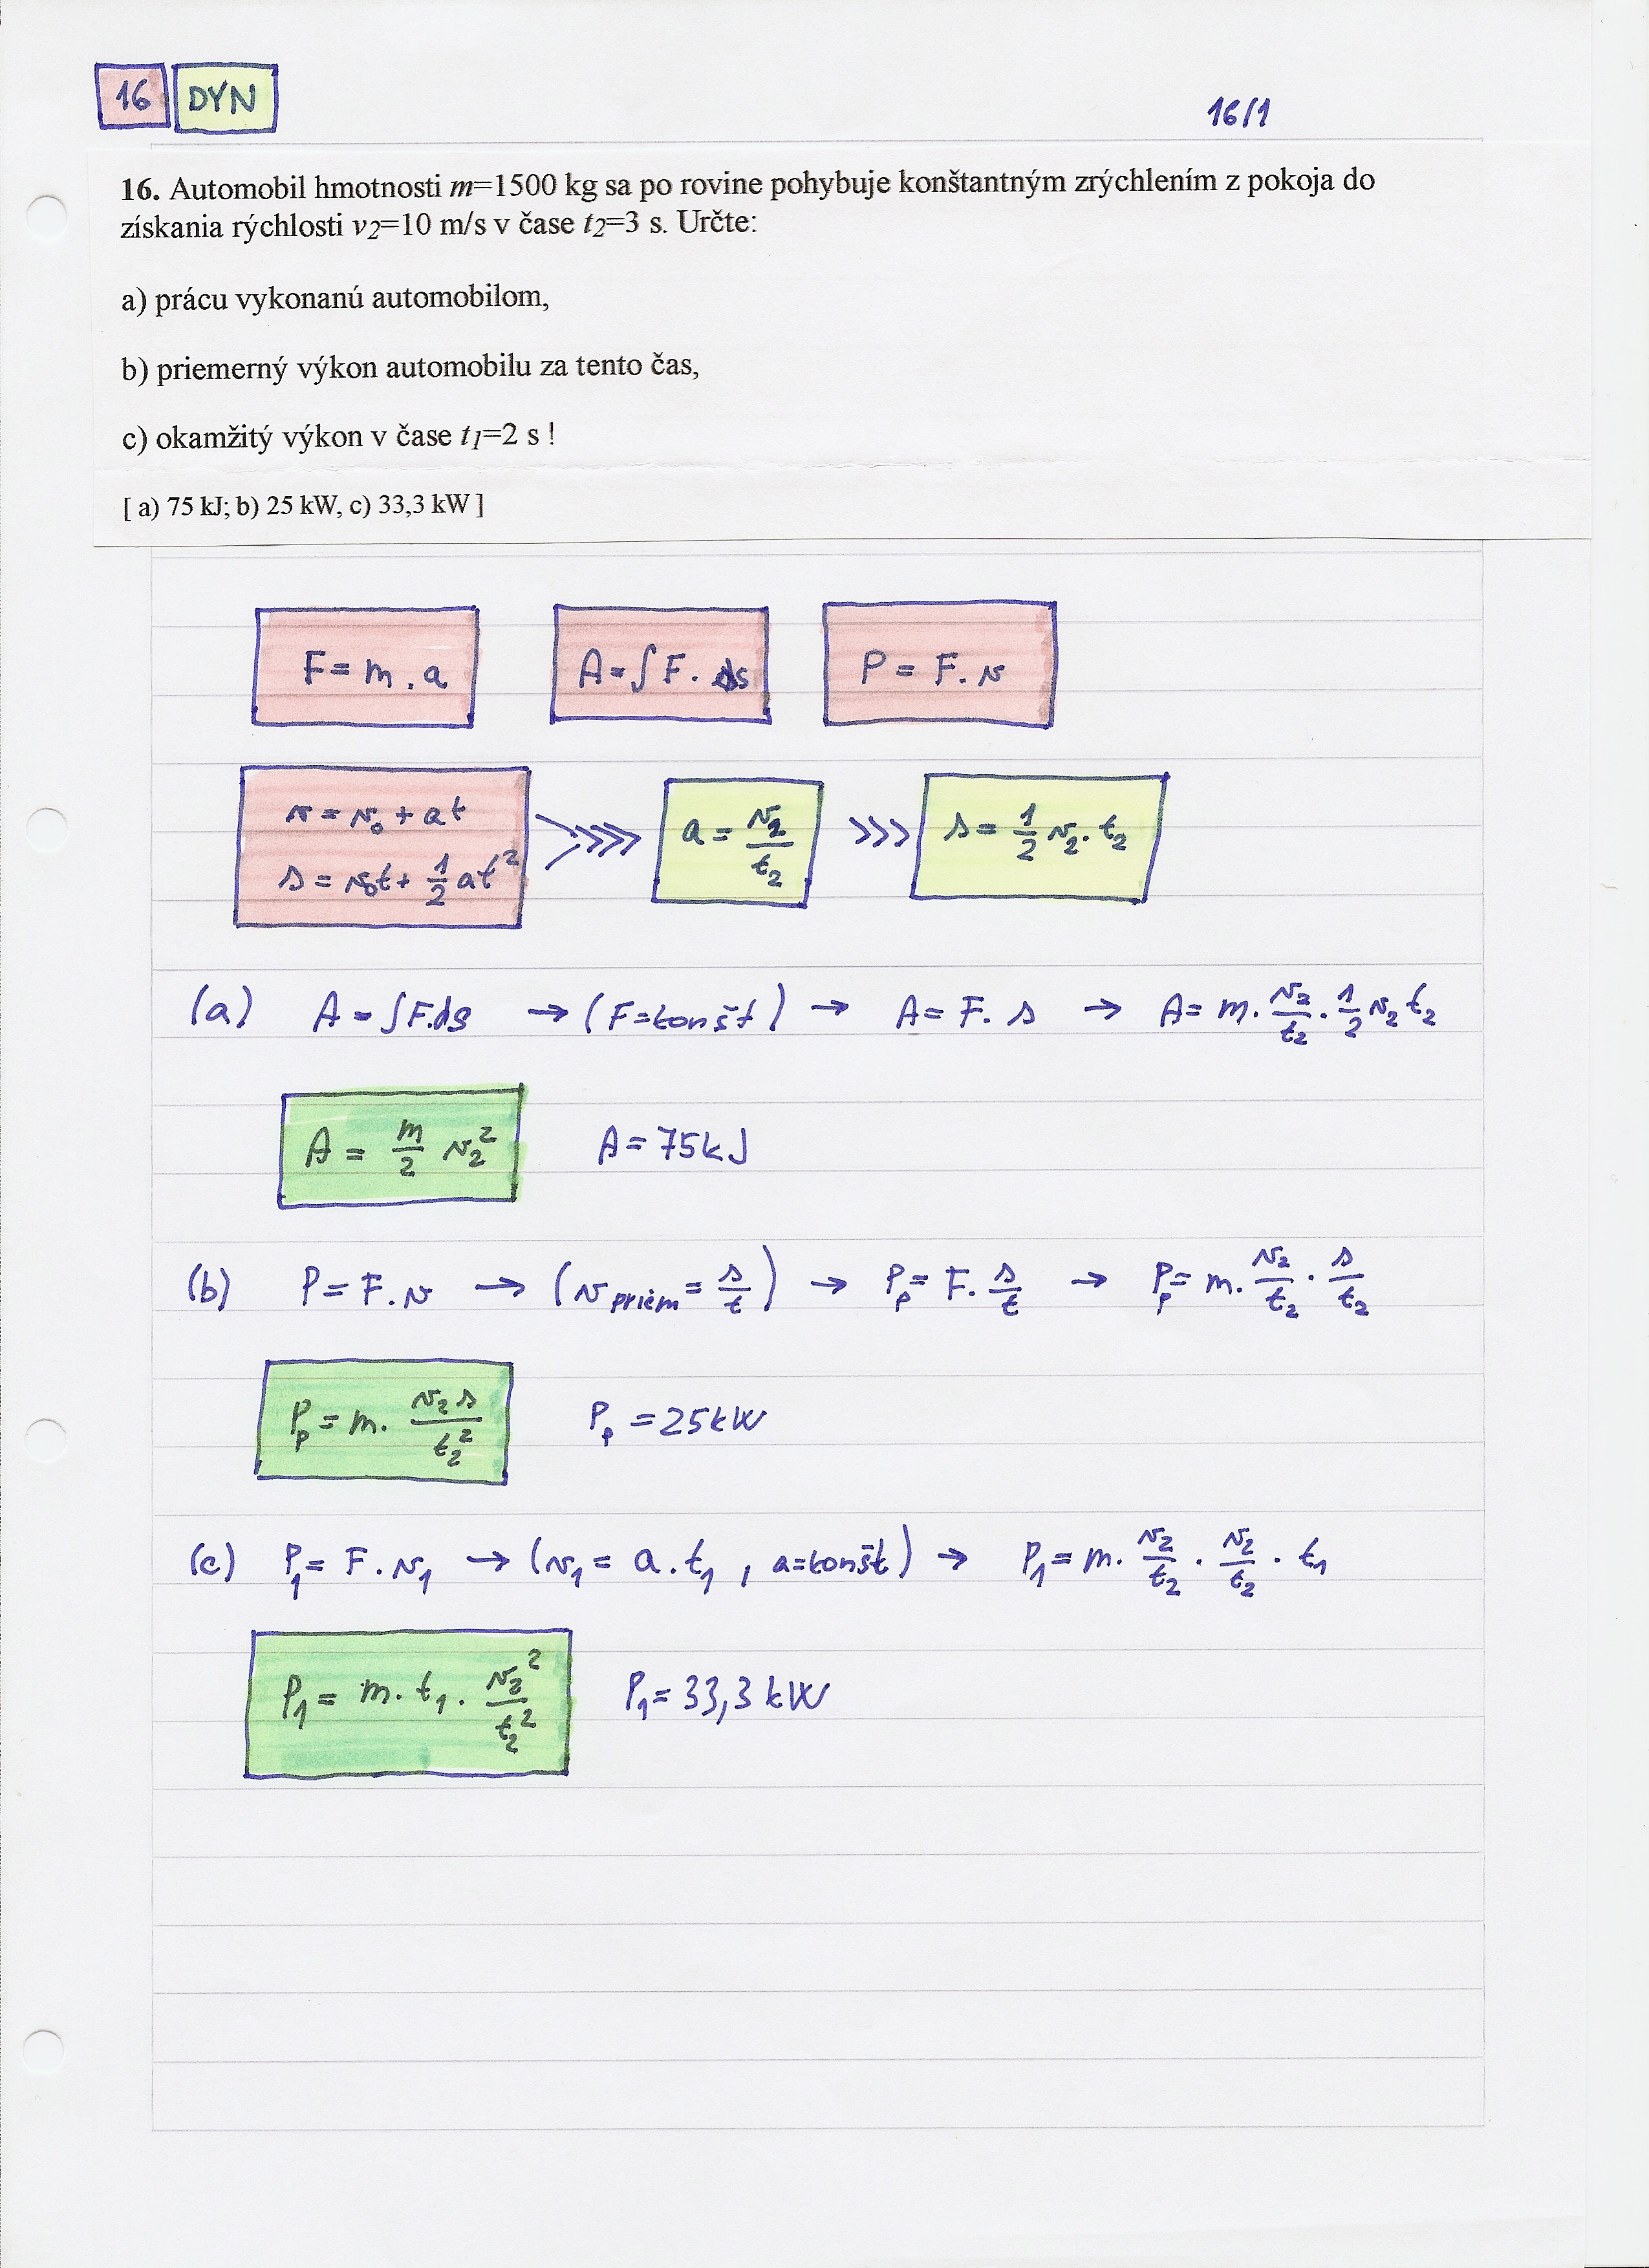 16 DYN
16/1
16. Automobil hmotnosti m=1500 kg sa po rovine pohybuje konštantným zrýchlením z pokoja do
získania rýchlosti v2=10 m/s v čase t2=3 s. Určte:
a) prácu vykonanú automobilom,
b) priemerný výkon automobilu za tento čas,
c) okamžitý výkon v čase t1=2 s !
[ a) 75 kJ; b) 25 kW, c) 33,3 kW ]
F = m . a A = ∫ F . ds P = F . v
v = v₀ + at
s = v₀t + 1/2 at² >>>> a = v₂/t₂ >>> s = 1/2 v₂ . t₂
(a) A = ∫ F.ds → (F=konšt) → A = F . s → A = m . v₂/t₂ . 1/2 v₂ t₂
A = m/2 v₂² A = 75kJ
(b) P = F . v → (v priem = s/t) → Pp = F . s/t → Pp = m . v₂/t₂ . s/t₂
Pp = m . v₂ s/t₂² Pp = 25kW
(c) P₁ = F . v₁ → (v₁ = a . t₁ , a=konšt) → P₁ = m . v₂/t₂ . v₂/t₂ . t₁
P₁ = m . t₁ . v₂²/t₂² P₁ = 33,3 kW